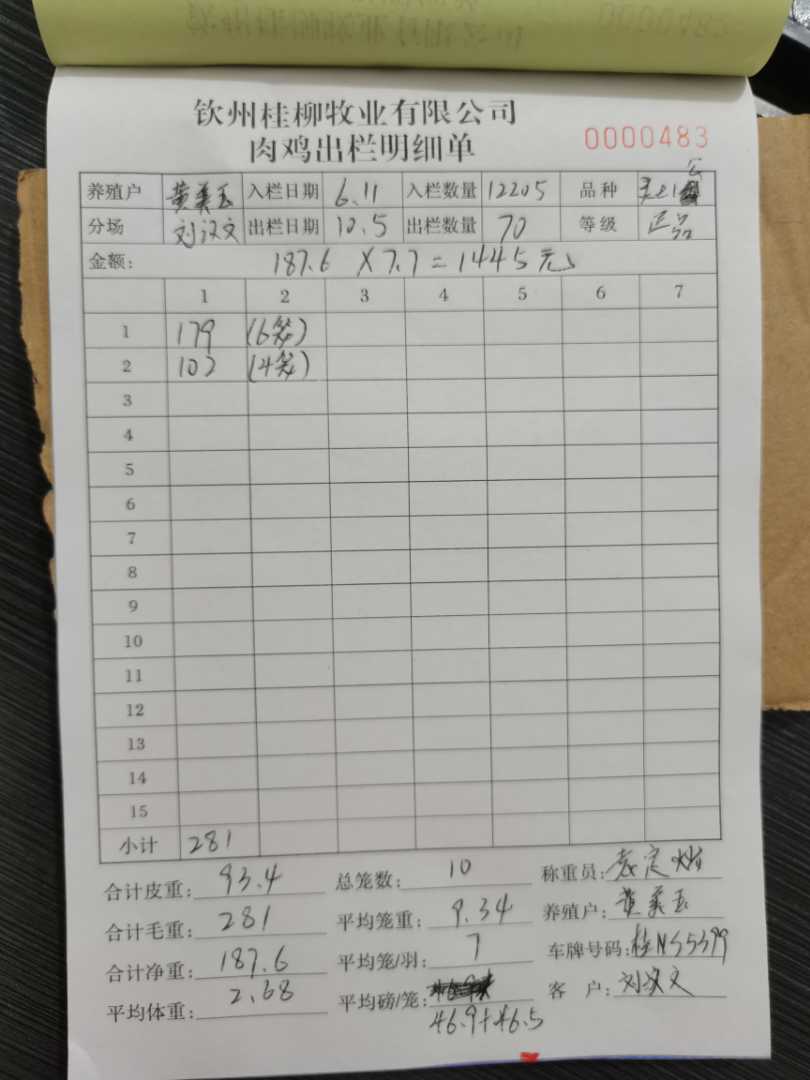 钦州桂柳牧业有限公司
肉鸡出栏明细单
0000483
养殖户 黄美玉 入栏日期 6.11 入栏数量 12205 品种 公
分场 刘汉文 出栏日期 10.5 出栏数量 70 等级 正品
金额: 187.6 X7.7=1445元
1 2 3 4 5 6 7
1 179 (6笼)
2 102 (4笼)
3
4
5
6
7
8
9
10
11
12
13
14
15
小计 281
合计皮重: 93.4 总笼数: 10 称重员:
合计毛重: 281 平均笼重: 9.34 养殖户: 黄美玉
合计净重: 187.6 平均笼/羽: 7 车牌号码: 桂NS5399
平均体重: 2.68 平均磅/笼: 客 户: 刘汉文
46.9+46.5